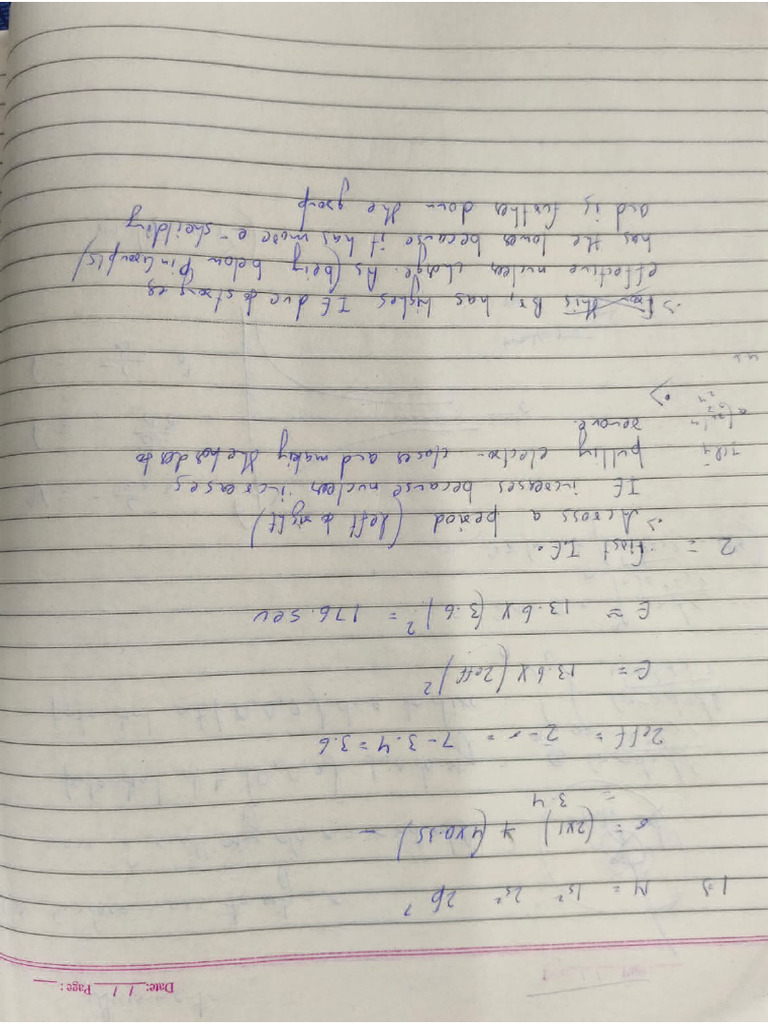 Date: / / Page:
1.3 N = 1s² 2s² 2p³
σ = (2×1) + (4×0.35) -
= 3.4
Zeff = Z-σ = 7-3.4 = 3.6
E = 13.6 × (Zeff)²
E ≈ 13.6 × (3.6)² = 176.5eV
2 = First I.E.
→ Across a period (left to right)
IE increases because nuclear increases
pulling electro- closer and making them harder to
remove.
has higher IE due to strong
effective nuclear charge. As (being below P in Groups)
has the lower because it has more e- sheilding
and is further down the group